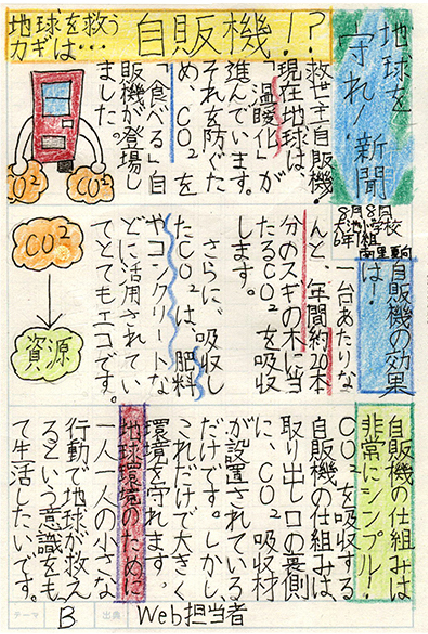 地球を
守れ!
新聞
地球を救う
カギは…
自販機!?
救世主自販機!
現在地球は、
「温暖化」が
進んでいます。
それを防ぐた
め、CO²を
「食べる」自
販機が登場し
ました。
CO²
CO²
8月8日
大池小学校
6年1組
自販機の効果
は!
一台あたりな
んと、年間約20本
分のスギの木に当
たるCO²を吸収
します。
さらに、吸収し
たCO²は、肥料
やコンクリートな
どに活用されてい
てとてもエコです。
CO²
資源
自販機の仕組みは
非常にシンプル!
CO²を吸収する
自販機の仕組みは、
取り出し口の裏側
に、CO²吸収材
が設置されている
だけです。しかし、
これだけで大きく
環境を守れます。
地球環境のために
一人一人の小さな
行動で地球が救え
るという意識をも
って生活したいです。
テーマ
B
出典
Web担当者